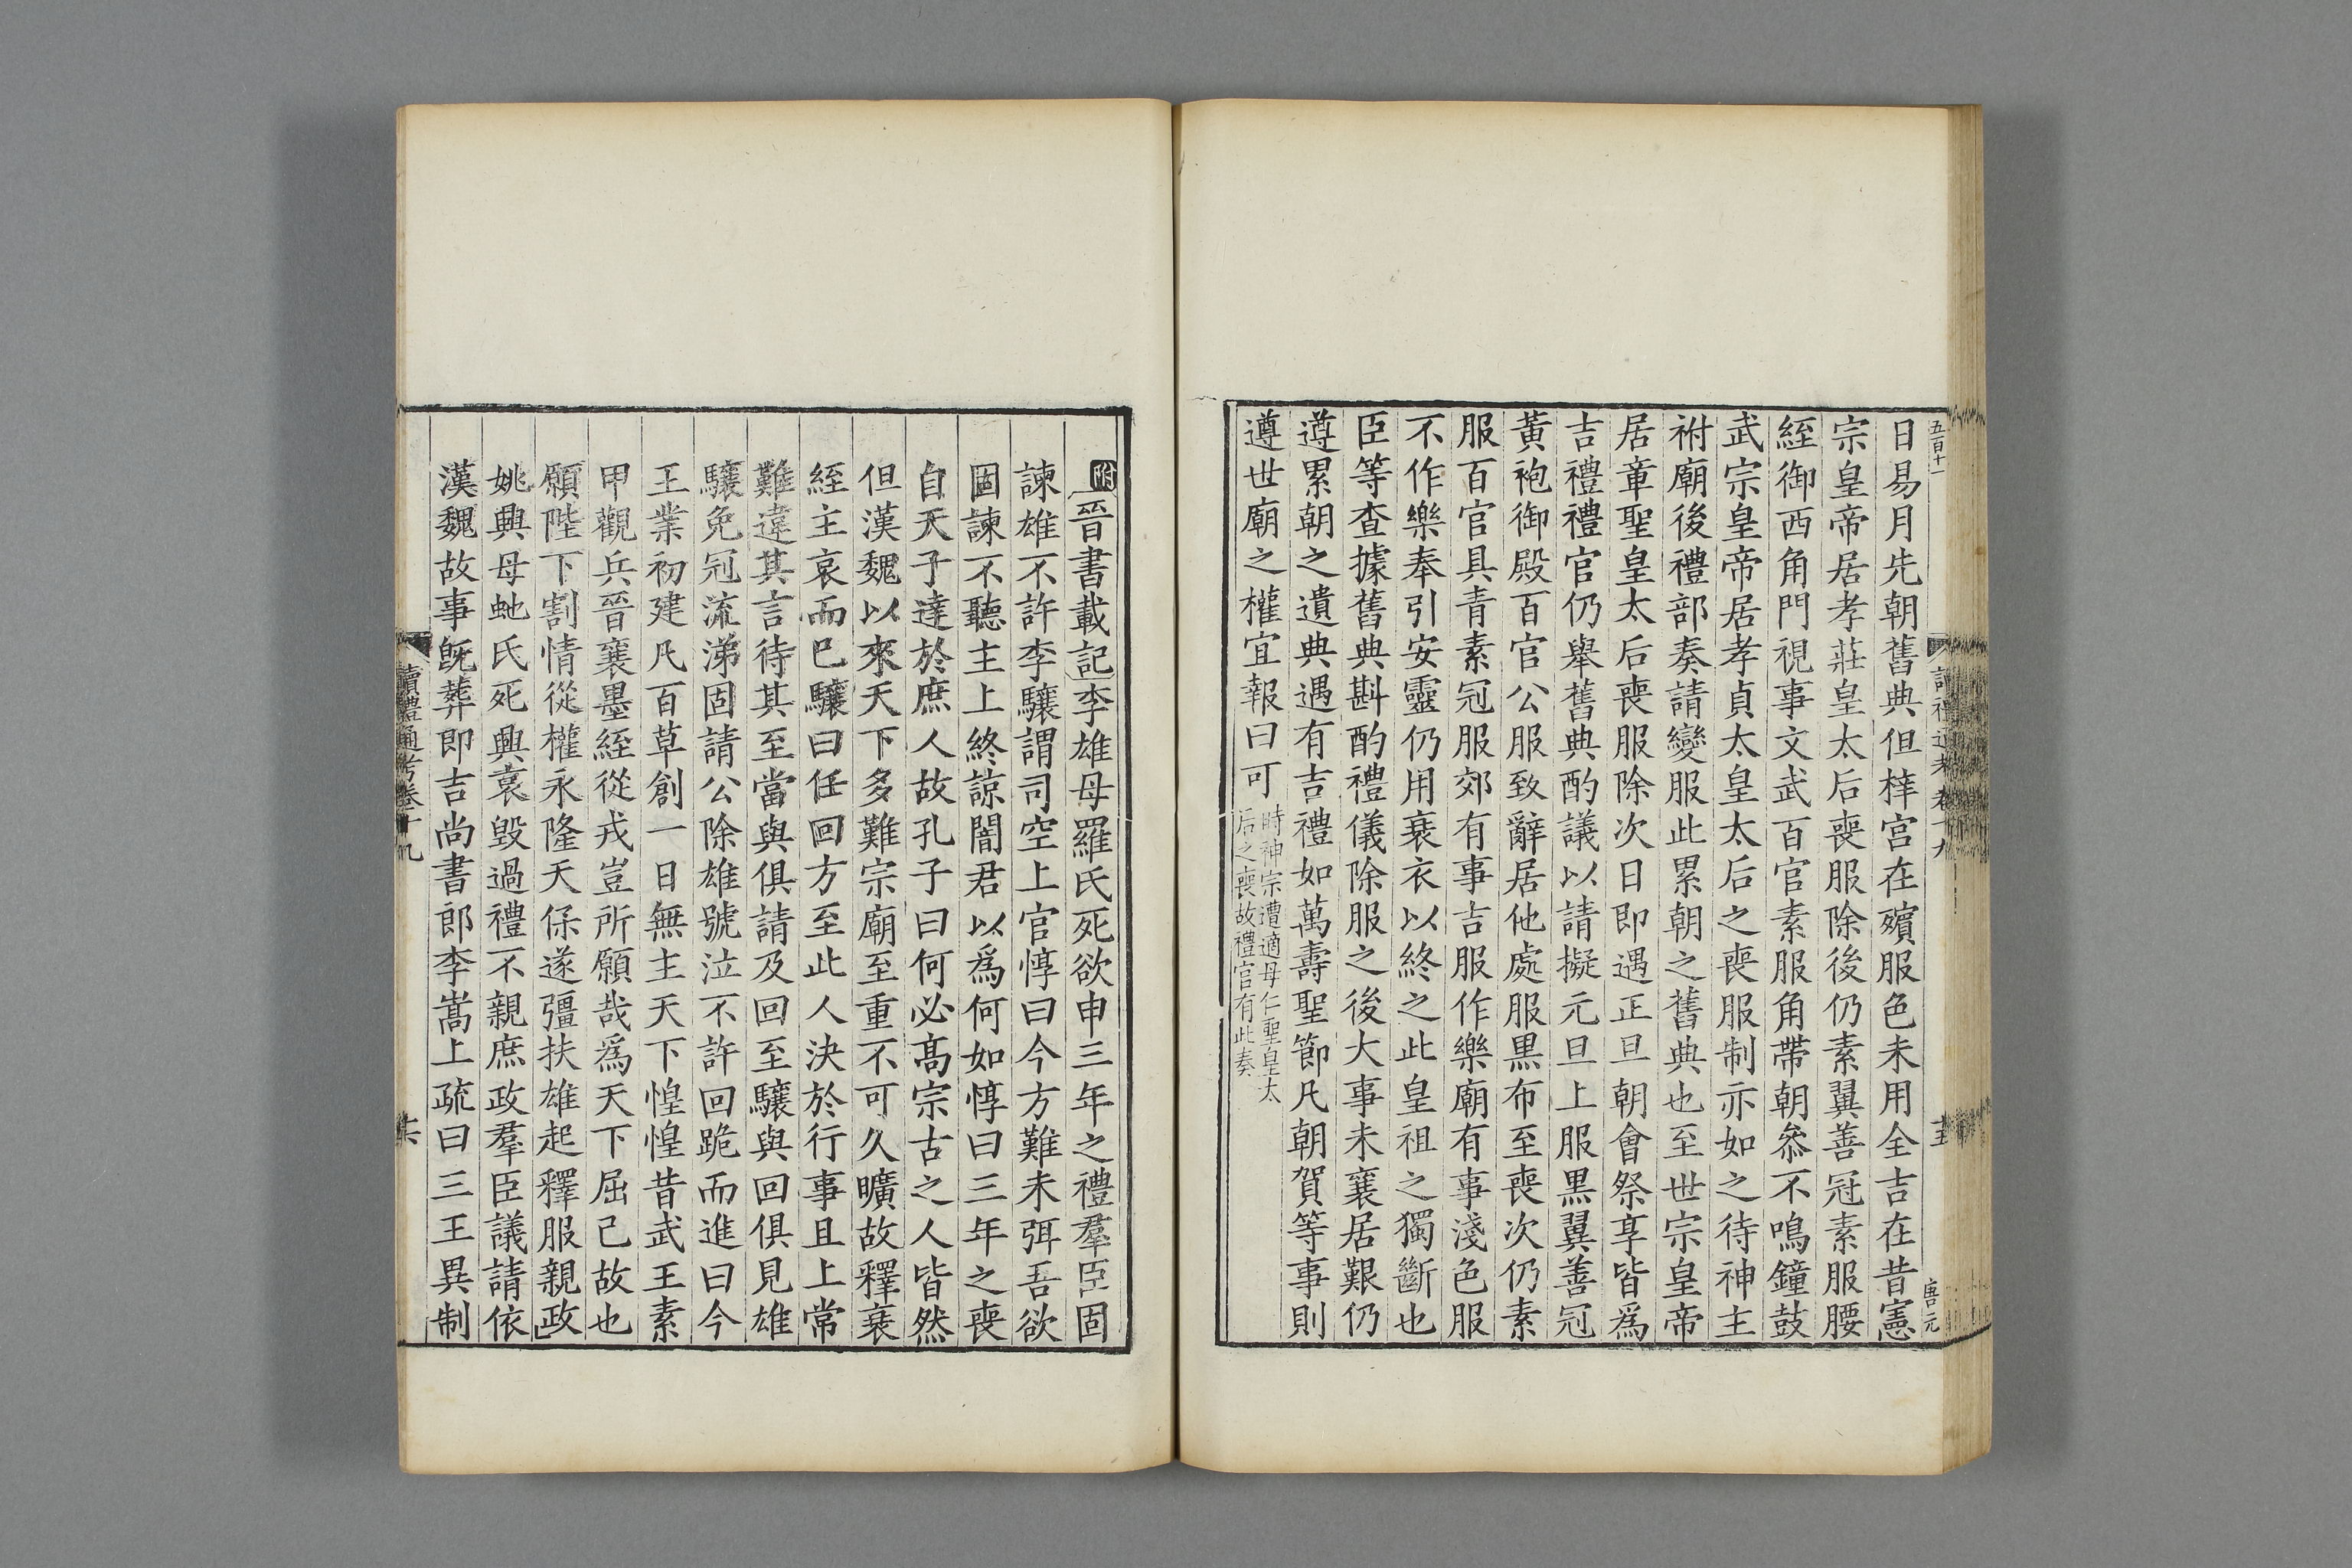 五百十一
日易月先朝舊典但梓宮在殯服色未用全吉在昔憲
宗皇帝居孝莊皇太后喪服除後仍素翼善冠素服腰
絰御西角門視事文武百官素服角帶朝叅不鳴鐘鼓
武宗皇帝居孝貞太皇太后之喪服制亦如之待神主
祔廟後禮部奏請變服此累朝之舊典也至世宗皇帝
居章聖皇太后喪服除次日即遇正旦朝會祭享皆爲
吉禮禮官仍舉舊典酌議以請擬元旦上服黑翼善冠
黃袍御殿百官公服致辭居他處服黑布至喪次仍素
服百官具青素冠服郊有事吉服作樂廟有事淺色服
不作樂奉引安靈仍用衰衣以終之此皇祖之獨斷也
臣等查據舊典斟酌禮儀除服之後大事未襄居艱仍
遵累朝之遺典遇有吉禮如萬壽聖節凡朝賀等事則
遵世廟之權宜報曰可
時神宗遭適母仁聖皇太
后之喪故禮官有此奏
唐元
附晉書載記李雄母羅氏死欲申三年之禮羣臣固
諫雄不許李驤謂司空上官惇曰今方難未弭吾欲
固諫不聽主上終諒闇君以爲何如惇曰三年之喪
自天子達於庶人故孔子曰何必高宗古之人皆然
但漢魏以來天下多難宗廟至重不可久曠故釋衰
絰主哀而已驤曰任回方至此人決於行事且上常
難違其言待其至當與俱請及回至驤與回俱見雄
驤免冠流涕固請公除雄號泣不許回跪而進曰今
王業初建凡百草創一日無主天下惶惶昔武王素
甲觀兵晉襄墨絰從戎豈所願哉爲天下屈己故也
願陛下割情從權永隆天保遂彊扶雄起釋服親政
姚興母虵氏死興哀毀過禮不親庶政羣臣議請依
漢魏故事旣葬即吉尚書郎李嵩上疏曰三王異制
讀禮通考卷十九